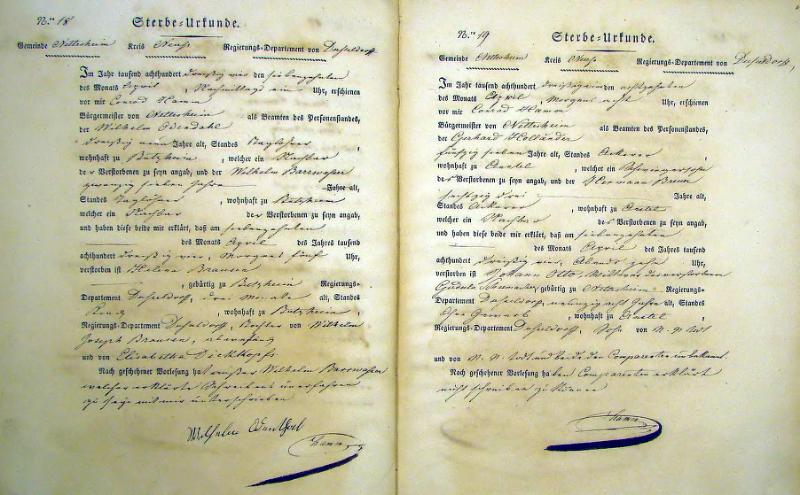 No. 18
Sterbe-Urkunde.
Gemeinde Nettesheim Kreis Neuss Regierungs-Departement von Dusseldorf
Im Jahr tausend achthundert dreyßig vier den siebenzehnten
des Monats April, Nachmittags ein Uhr, erschienen
vor mir Conrad Hamm
Bürgermeister von Nettesheim als Beamten des Personenstandes,
der Wilhelm Odendahl
dreyßig neun Jahre alt, Standes Taglöhner,
wohnhaft zu Butzheim, welcher ein Nachbar
der Verstorbenen zu seyn angab, und der Wilhelm Barrwasser
zwanzig sieben Jahre Jahre alt,
Standes Taglöhner, wohnhaft zu Butzheim
welcher ein Nachbar der Verstorbenen zu seyn angab,
und haben diese beide mir erklärt, daß am siebenzehnten
des Monats April des Jahres tausend
achthundert dreyßig vier, Morgens fünf Uhr,
verstorben ist Helena Brausen
, gebürtig zu Butzheim Regierungs-
Departement Dusseldorf, drei Monate alt, Standes
Kind, wohnhaft zu Butzheim,
Regierungs-Departement Dusseldorf, Tochter von Wilhelm
Joseph Brausen,
und von Elisabetha Dickkopf
Nach geschehener Vorlesung hat Wilhelm Barrwasser
welcher erklärte Schreibens unerfahren
zu seyn mit mir unterschrieben
Wilhelm Odenthal
Hamm
No. 19
Sterbe-Urkunde.
Gemeinde Nettesheim Kreis Neuss Regierungs-Departement von Dusseldorf,
Im Jahr tausend achthundert dreißig vier den achtzehnten
des Monats April, Morgens acht Uhr, erschienen
vor mir Conrad Hamm
Bürgermeister von Nettesheim als Beamten des Personenstandes,
der Gerhard Holländer
fünfzig sieben Jahre alt, Standes Ackerer,
wohnhaft zu Anstel, welcher ein Schwiegersohn
des Verstorbenen zu seyn angab, und der Hermann Braun
sechszig drei Jahre alt,
Standes Ackerer, wohnhaft zu Anstel
welcher ein Nachbar des Verstorbenen zu seyn angab,
und haben diese beide mir erklärt, daß am siebenzehnten
des Monats April des Jahres tausend
achthundert dreißig vier, Abends zehn Uhr,
verstorben ist Johann Otto, Wittwer der verstorbenen
Gudula, gebürtig zu Nettesheim Regierungs-
Departement Dusseldorf, neunzig acht Jahre alt, Standes
ohne Gewerb, wohnhaft zu Anstel,
Regierungs-Departement Dusseldorf, Sohn von N. N. Otto
und von N. N. Todt und beide den Comparenten unbekannt.
Nach geschehener Vorlesung haben Comparenten erklärt
nicht schreiben zu können
Hamm